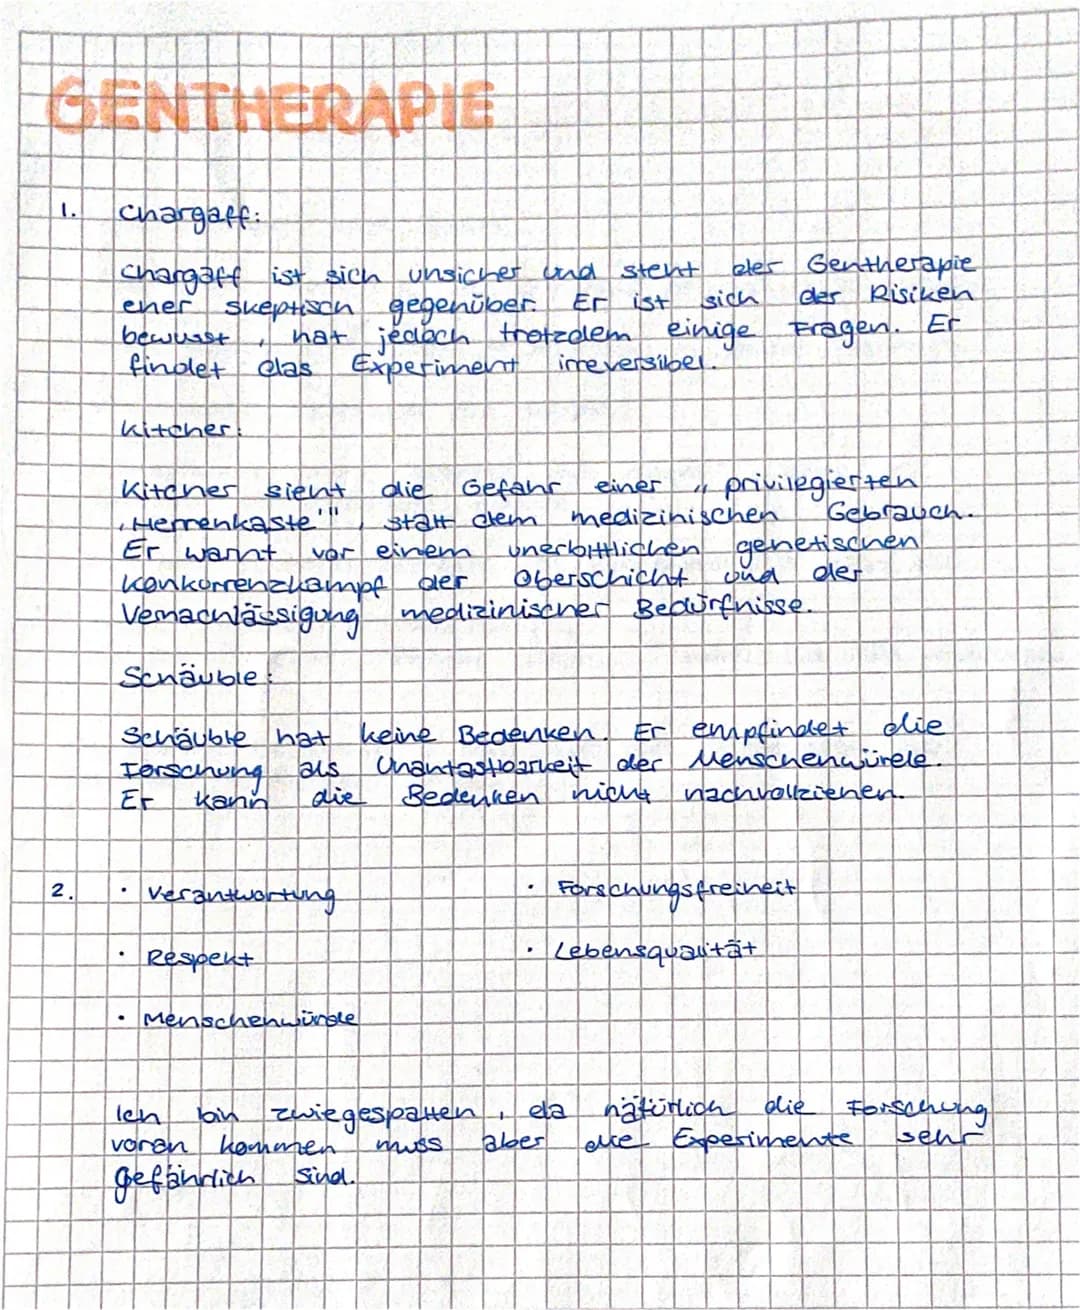 GENTHERAPIE
1. Chargaff:
Chargaff ist sich unsicher und steht der Gentherapie
eher skeptisch gegenüber. Er ist sich der Risiken
bewusst, hat jedoch trotzdem einige Fragen. Er
findet das Experiment irreversibel.
Kitcher:
Kitcher sieht die Gefahr einer „privilegierten
'Herrenkaste'", statt dem medizinischen Gebrauch.
Er warnt vor einem unerbittlichen genetischen
Konkurrenzkampf der Oberschicht und der
Vernachlässigung medizinischer Bedürfnisse.
Schäuble:
Schäuble hat keine Bedenken. Er empfindet die
Forschung als Unantastbarkeit der Menschenwürde.
Er kann die Bedenken nicht nachvollziehen.
2. · Verantwortung · Forschungsfreiheit
· Respekt · Lebensqualität
· Menschenwürde
Ich bin zwiegespalten, da natürlich die Forschung
voran kommen muss aber die Experimente sehr
gefährlich sind.